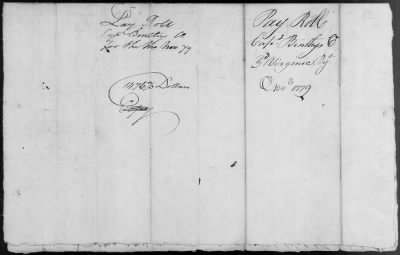 Pay Roll
Capt Bentley Co
for the Mo Nov 79
1476⅔ Dollars
Copy
Pay Roll
Capt. Bentleys C
3d Virginia Rgt
Nov. 1779